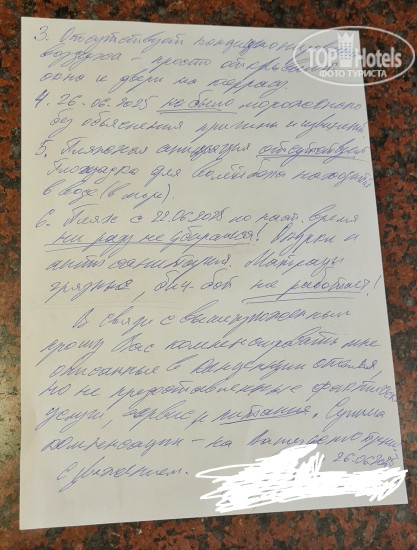 TOP Hotels
ФОТО ТУРИСТА
3. Отсутствует кондиционер
воздуха - просто открываем
окна и двери на террасу.
4. 26.06.2025 не было мороженого
без объяснения причины и
5. Пляжная анимация отсутствует.
Площадка для волейбола находится
в воде (в море).
6. Пляж с 22.06.2025 по наст. время
ни разу не убирался! Окурки и
антисанитария. Матрацы
грязные, бич бар не работает!
В связи с вышеуказанным
прошу Вас компенсировать мне
описанные в концепции отеля,
но не предоставленные фактически
услуги, сервис и питание. Сумма
компенсации - на
26.06.2025
С уважением.